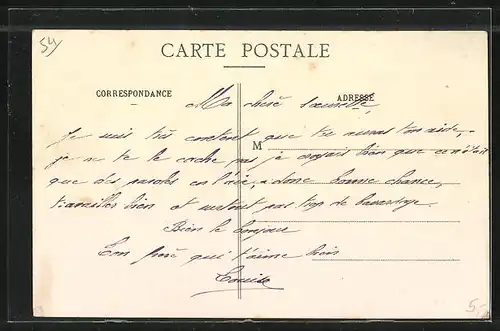 54
CARTE POSTALE
CORRESPONDANCE
ADRESSE
Ma chère sœurette,
Je suis très content que tu aimes ton aide,
M
je ne te le cache pas je croyais bien que ce n'était
que des paroles en l'air, donc bonne chance,
travailles bien et surtout pas trop de bavardage.
Bien le bonjour
Ton frère qui t'aime bien
Louis
5,-